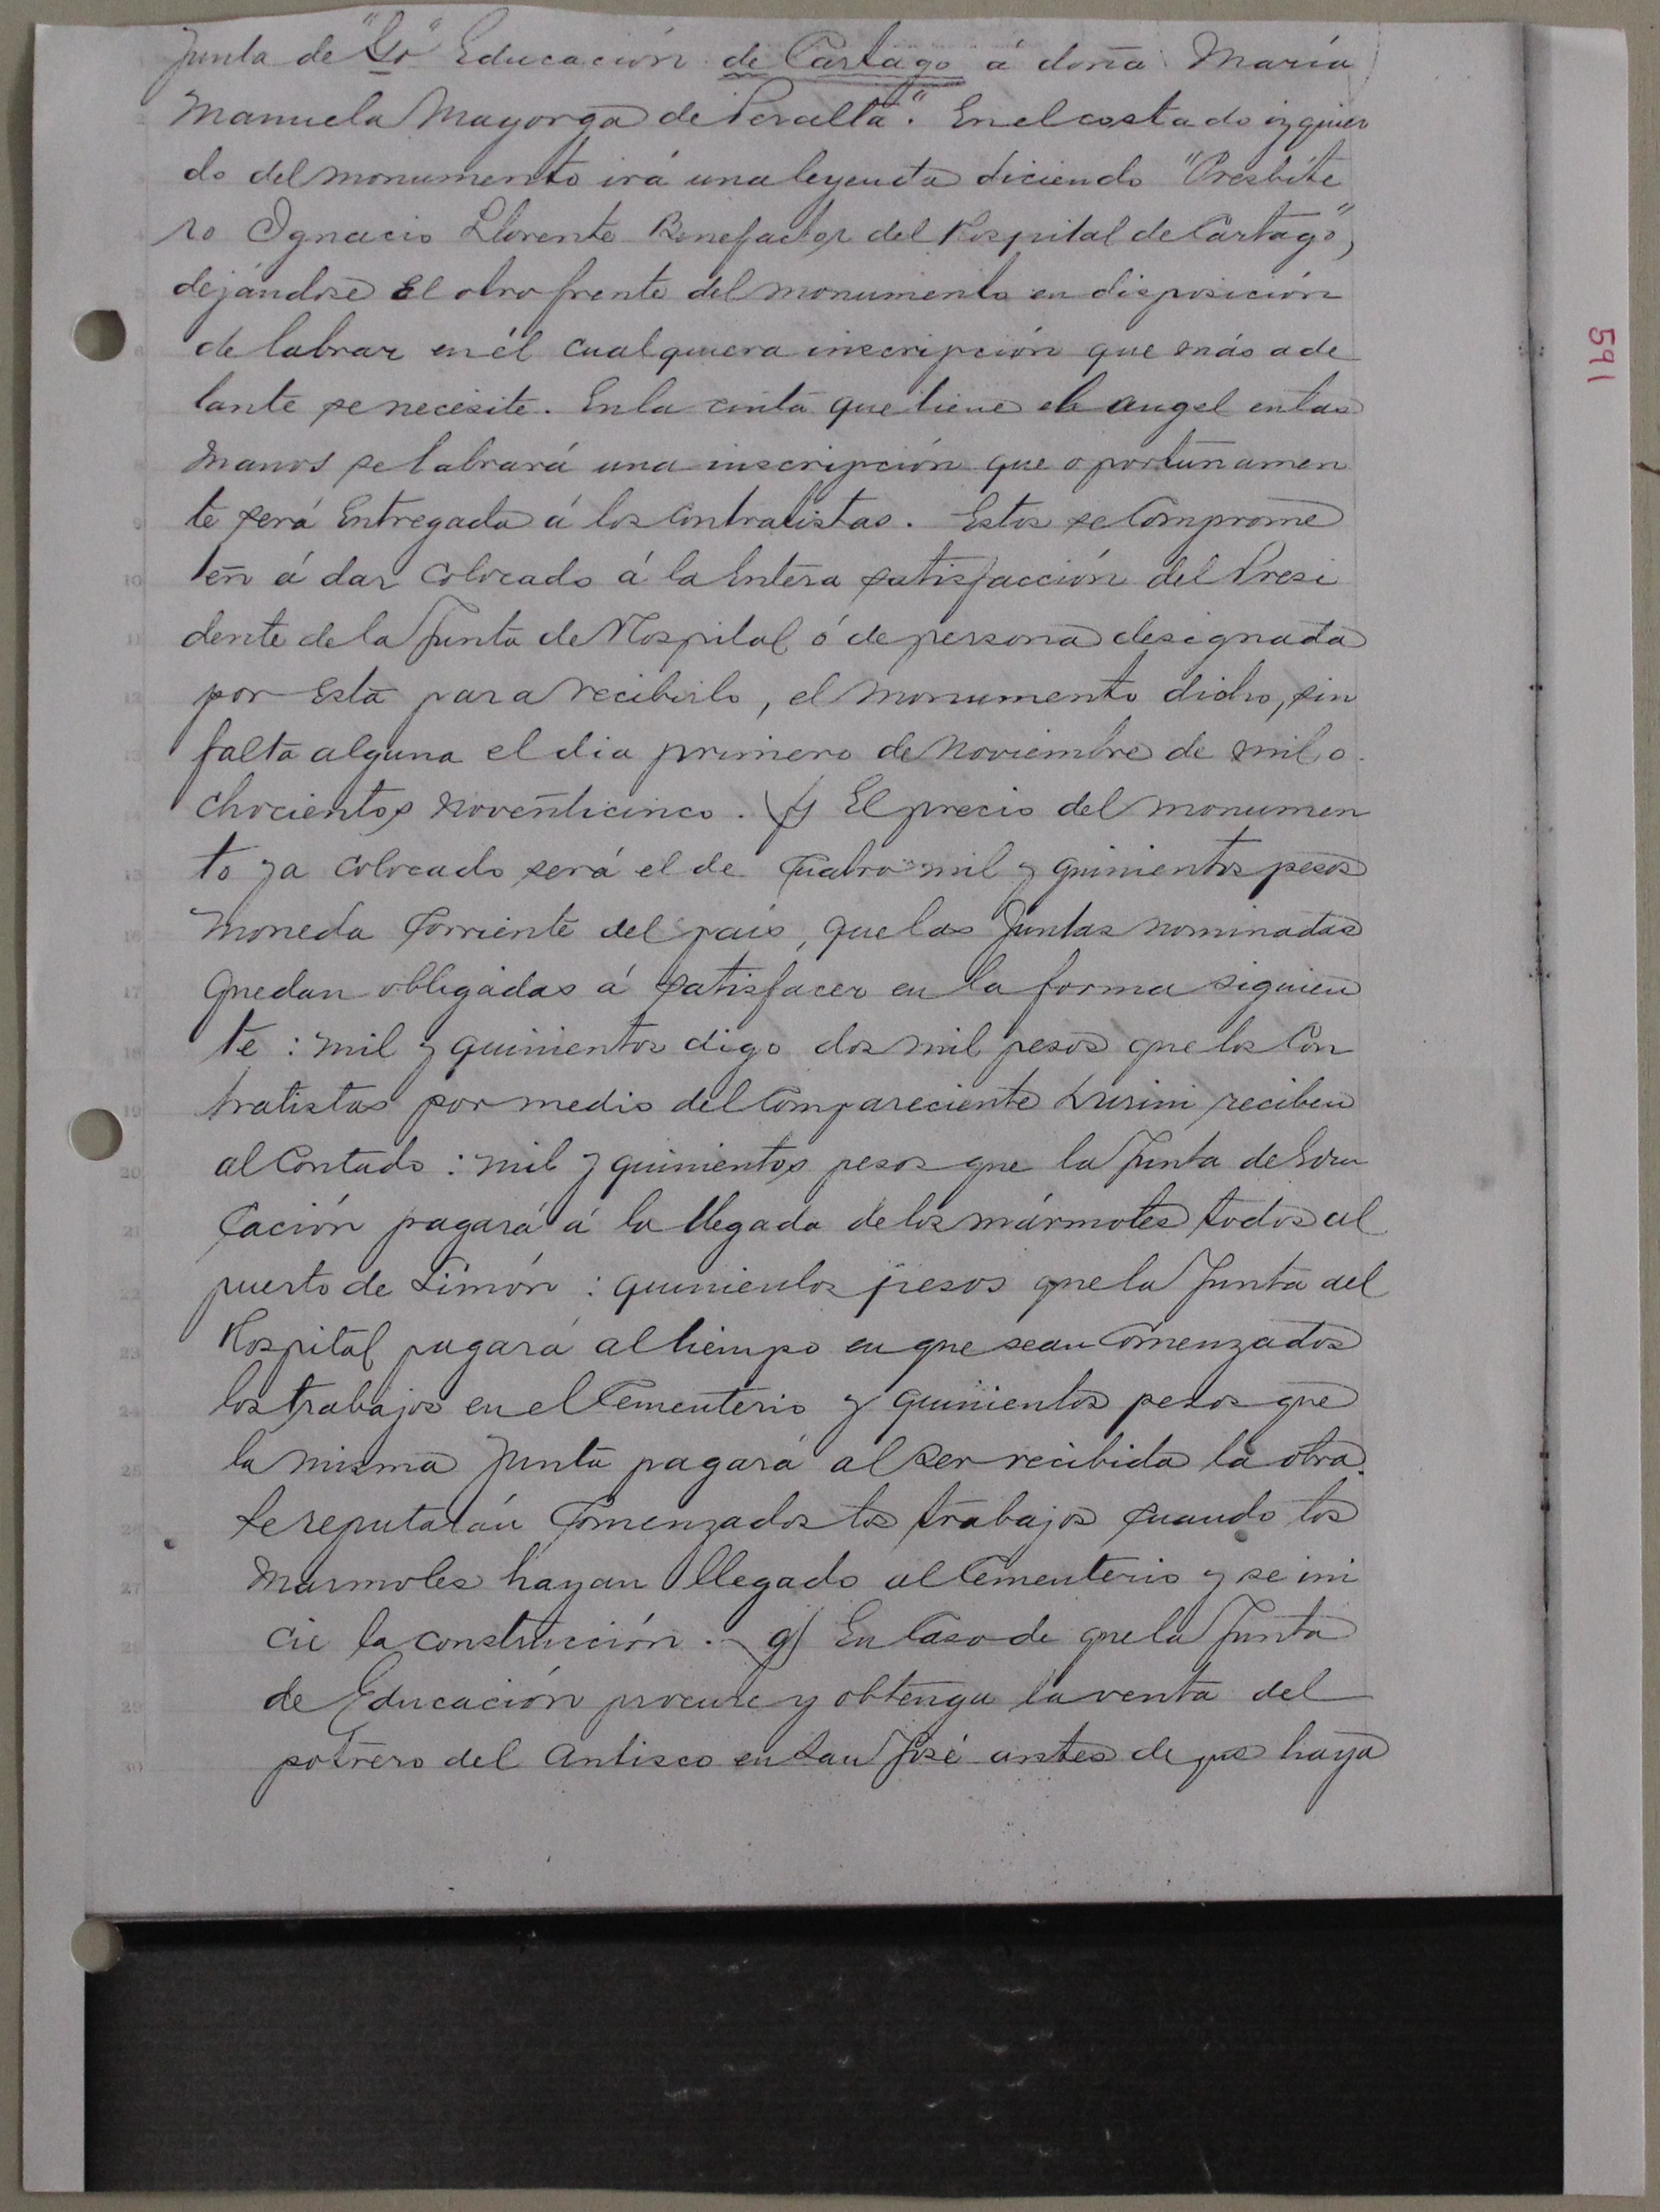 Junta de Educación de Cartago á doña María
Manuela Mayorga de Peralta". En el costado izquier
do del monumento irá una leyenda diciendo "Presbíte
ro Ignacio Llorente Benefactor del Hospital de Cartago",
dejándose el otro frente del monumento en disposición
de labrar en él cualquiera inscripción que más ade
lante se necesite. En la cinta que tiene el angel en las
manos se labrará una inscripción que oportunamen
te será entregada á los contratistas. Estos se comprome
ten á dar colocado á la entera satisfacción del Presi
dente de la Junta de Hospital ó de persona designada
por esta para recibirlo, el monumento dicho, sin
falta alguna el dia primero de Noviembre de mil o
chocientos noventicinco. f) El precio del monumen
to ya colocado será el de cuatro mil y quinientos pesos
moneda corriente del pais, que las Juntas nominadas
quedan obligadas á satisfacer en la forma siguien
te: mil y quinientos digo dos mil pesos que los Con
tratistas por medio del compareciente reciben
al contado: mil y quinientos pesos que la Junta de Edu
cación pagará á la llegada de los mármoles todos al
puerto de Limón: quinientos pesos que la Junta del
Hospital pagará al tiempo en que sean comenzados
los trabajos en el Cementerio y quinientos pesos que
la misma Junta pagará al ser recibida la obra.
Se reputarán comenzados los trabajos cuando los
marmoles hayan llegado al Cementerio y se ini
cie la construcción. g) En caso de que la Junta
de Educación procure y obtenga la venta del
potrero del en San José antes de que haya
591